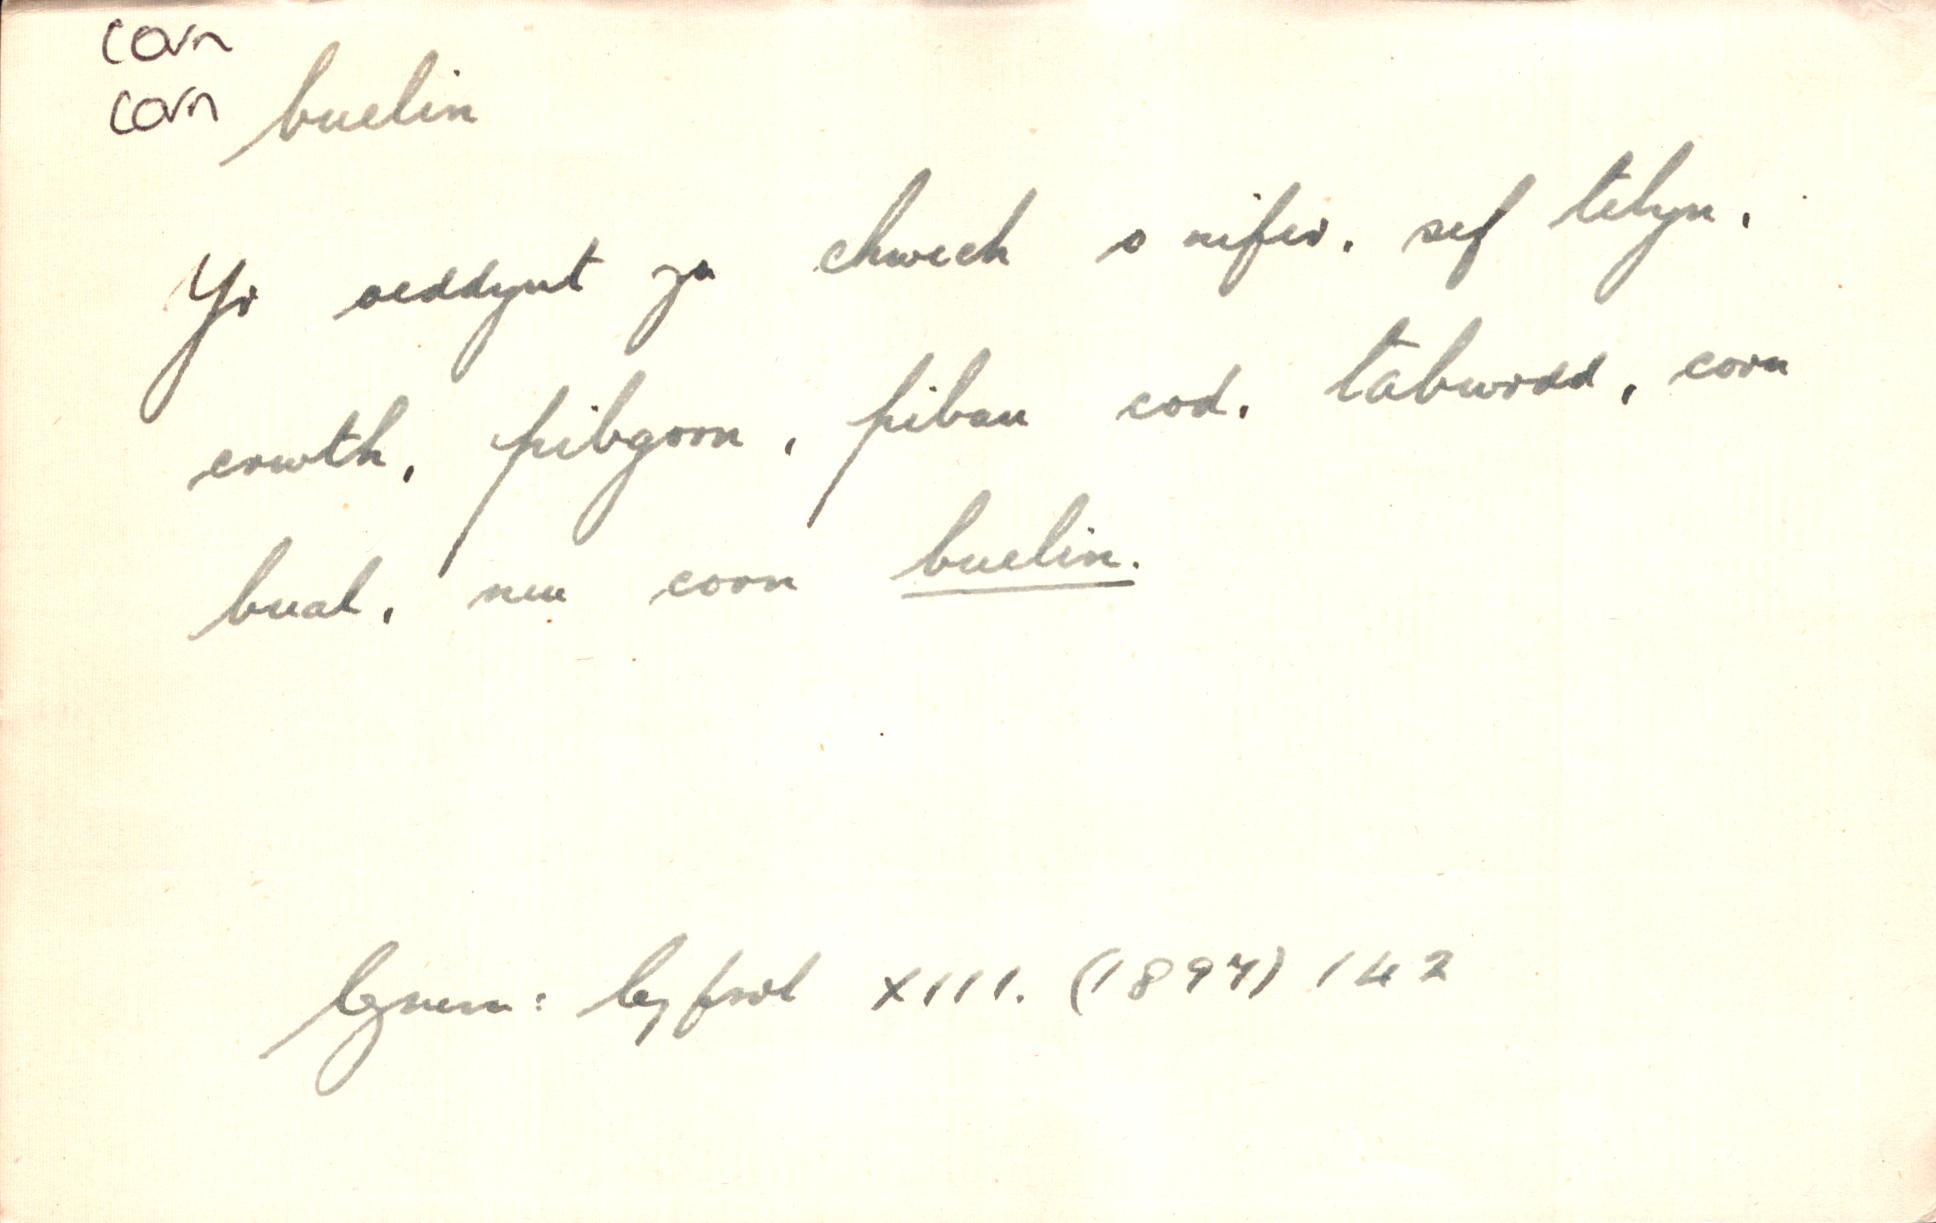 corn
corn buelin
Yr oeddynt yn chwech o nifer, sef telyn,
crwth, pibgorn, piban cod, tabwrdd, corn
bual, neu corn buelin.
Cymru: Cyfrol XIII. (1897) 142